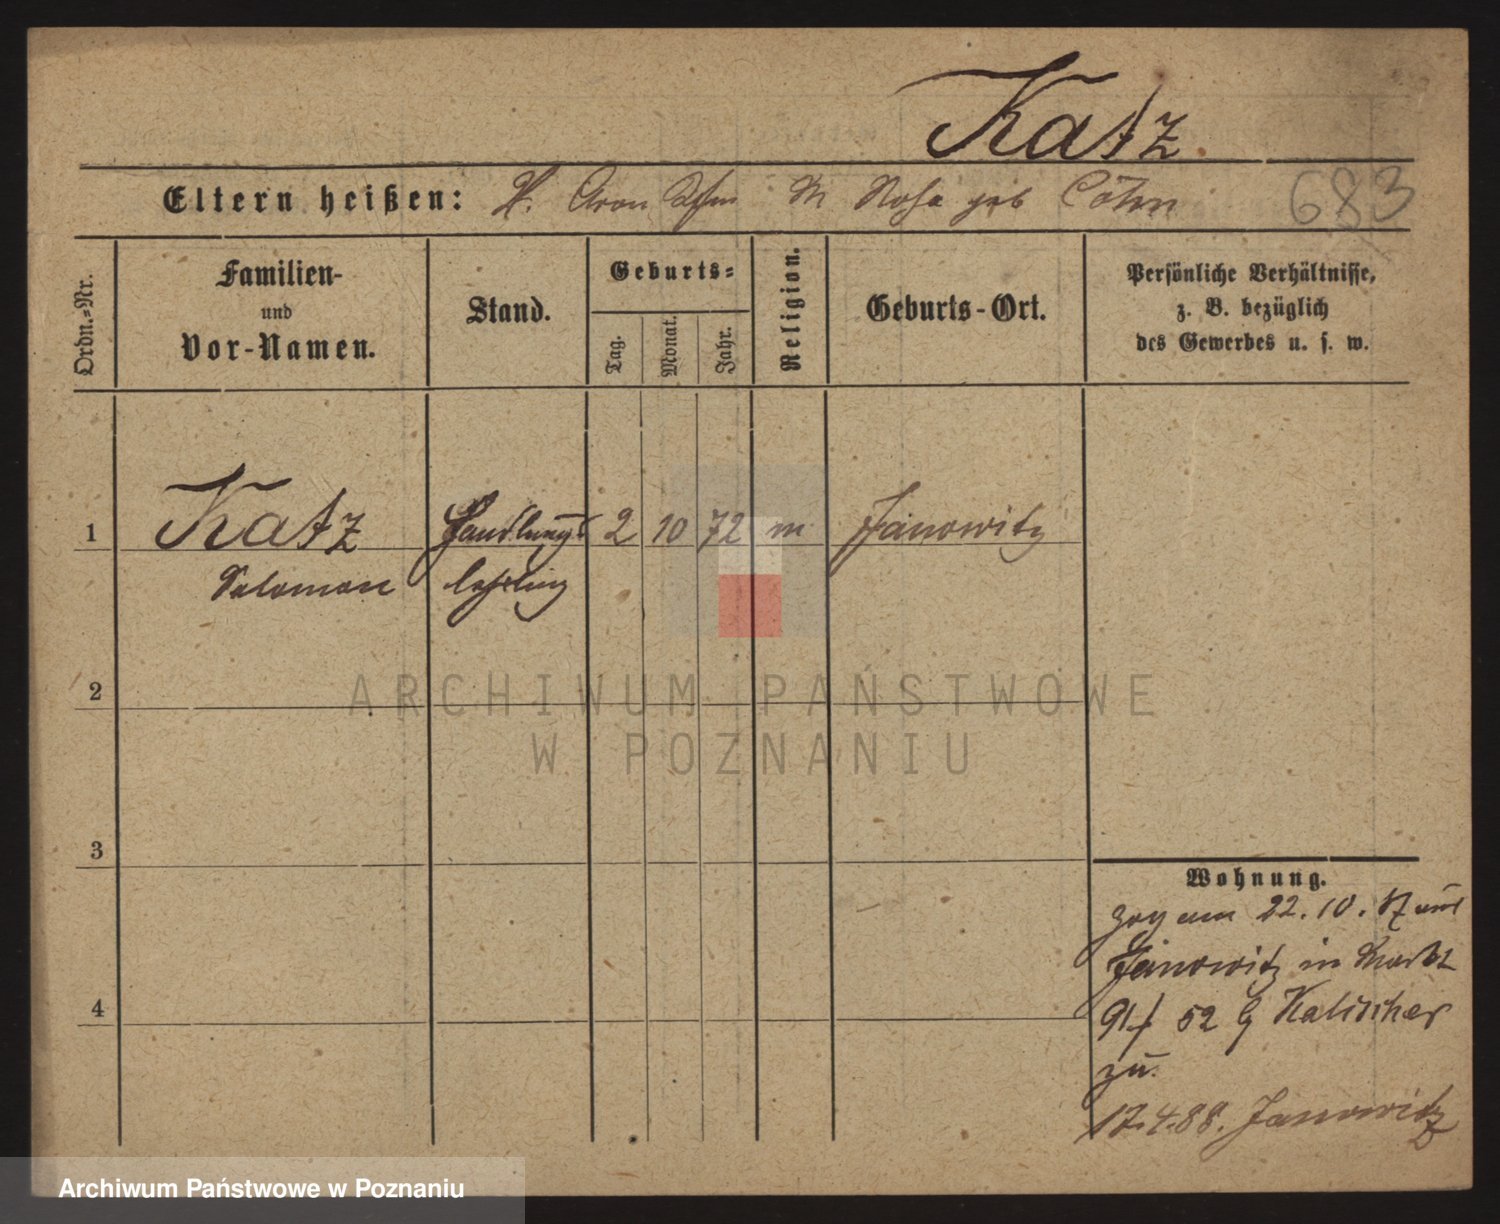 Katz
Eltern heißen: Aron Rosa geb Cohn 683
Ordn.-Nr.
Familien-
und
Vor-Namen.
Stand.
Geburts-
Tag.
Monat.
Jahr.
Religion.
Geburts-Ort.
Persönliche Verhältnisse,
z. B. bezüglich
des Gewerbes u. s. w.
1 Katz Handlungs 2 10 72 m Janowitz
Salomon lehrling
ARCHIWUM PAŃSTWOWE
W POZNANIU
2
3
4
Wohnung.
zog am 22.10.87 aus
Janowitz in Markt
91/ 52 Kalischer
zu.
17.4.88. Janowitz
Archiwum Państwowe w Poznaniu